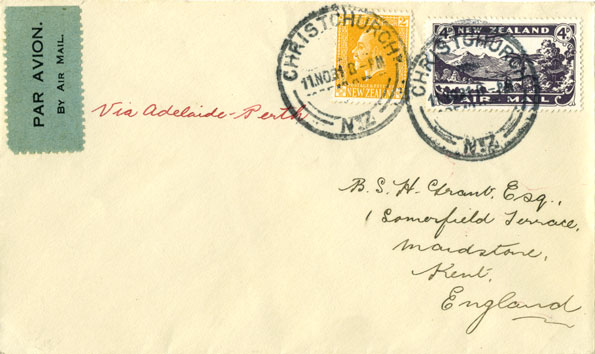 PAR AVION.
BY AIR MAIL.
Via Adelaide-Perth
CHRISTCHURCH
11 NO 31
N.Z.
NEW ZEALAND
CHRISTCHURCH
N.Z.
4D
NEW ZEALAND
AIR MAIL
B. S. H. Grant, Esq.,
1 Somerfield Terrace,
Maidstone,
Kent.
England